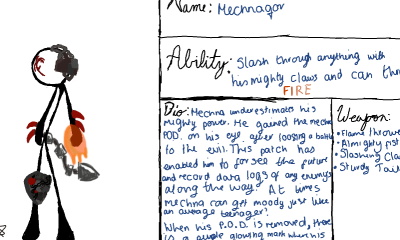 Name: Mechnagor
Ability: Slash through anything with
his mighty claws and can
FIRE
Bio: Mechna underestimates his
mighty power. He gained the
POD. on his eye, after loosing a
to the evil. This patch has
enabled him to forsee the future
and record data logs of any enemys
along the way. At times
Mechna can get moody just like
an average teenager.
When his P.O.D. is removed, there
is a purple glowing mark where his
Weapon:
• Flame
• Almighty fist
• Slashing
• Sturdy